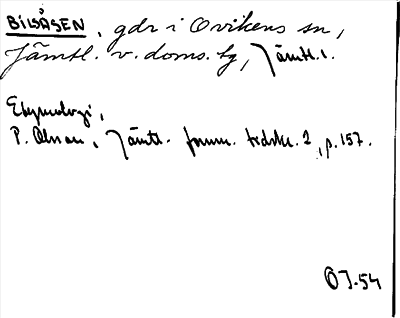 BILSÅSEN, gdr i Ovikens sn,
Jämtl. v. doms. tg, Jämtl. l.
Etymologi,
P. Olsson, Jämtl. fornm. tidskr. 2, p. 157.
OJ-54